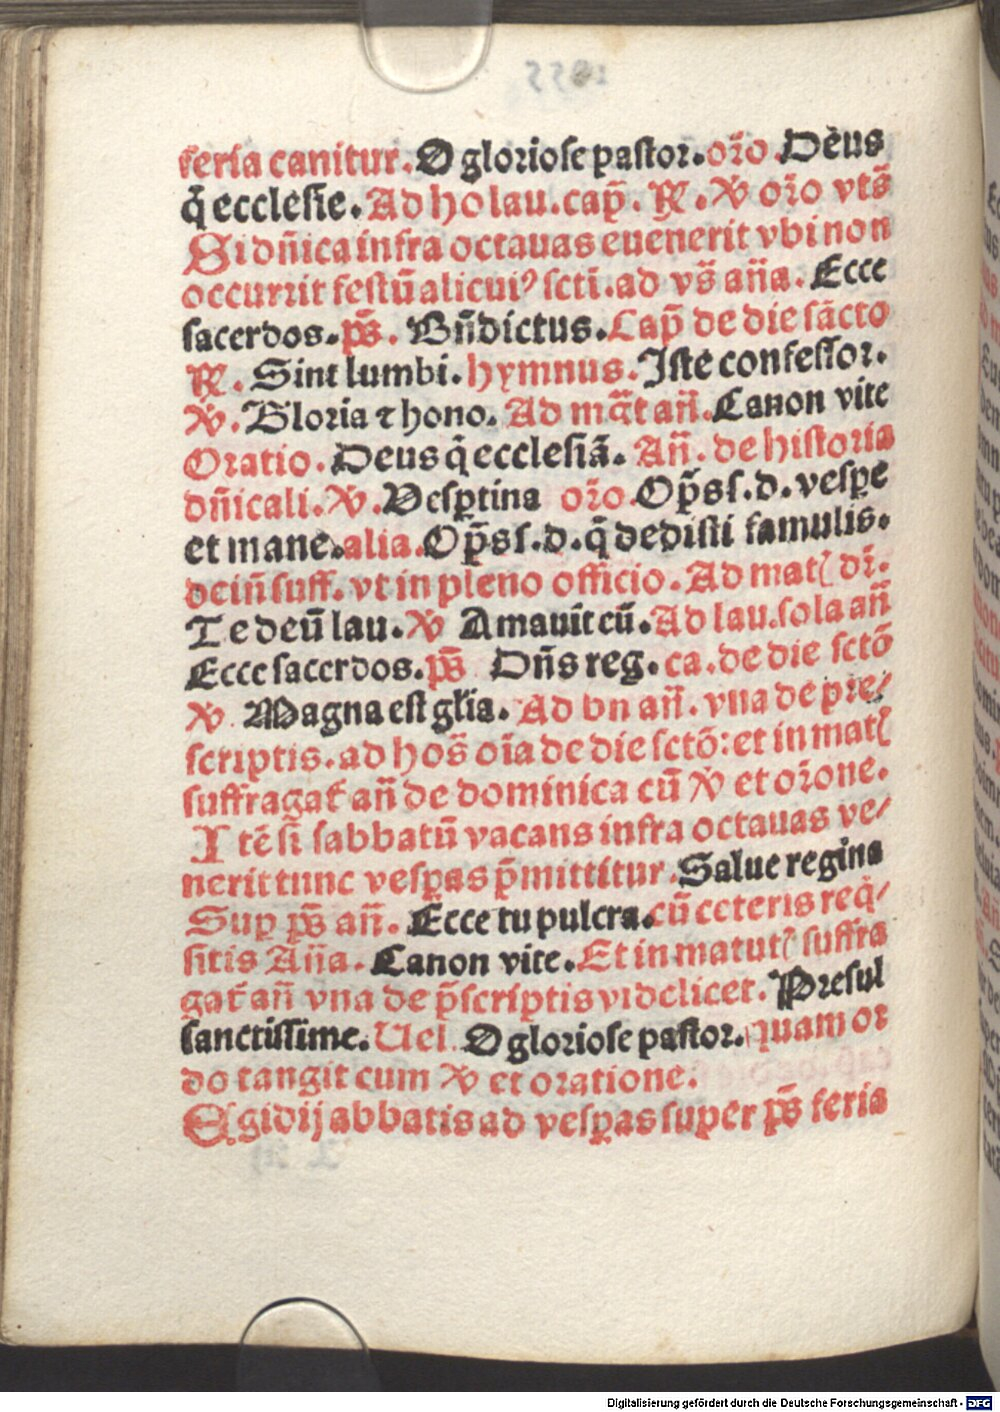 feria canitur. O gloriose pastor. or̃o. Deus
q̃ ecclesie. Ad ho lau. cap̃. ℟. ℣ or̃o vts̃
Si dñica infra octauas euenerit vbi non
occurrit festũ alicuiꝰ scti. ad vs̃ añа. Ecce
sacerdos. ps̃. Bñdictus. Cap̃ de die sãcto
℟. Sint lumbi. hymnus. Iste confessor.
℣. Gloria ⁊ hono. Ad mãt añ. Canon vite
Oratio. Deus q̃ ecclesiã. Añ. de historia
dñicali. ℣. Vesꝑtina or̃o. Op̃s s. d. vesꝑe
et mane. alia. Op̃s s. d. q̃ dedisti famulis.
deiñ suff. vt in pleno officio. Ad mat̃ dr̃.
Te deũ lau. ℣ Amauit cũ. Ad lau. sola añ
Ecce sacerdos. ps̃ Dñs reg. ca. de die sctõ
℣. Magna est gl̃ia. Ad bn añ. vna de pre/
scriptis. ad hos̃ oĩa de die sctõ: et in mat̃
suffragat̃ añ de dominica cũ ℣ et or̃one.
Itẽ si sabbatũ vacans infra octauas ve/
nerit tunc vesꝑas p̃mittitur. Salue regina
Suꝑ ps̃ añ. Ecce tu pulcra. cũ ceteris req̃/
sitis Aña. Canon vite. Et in matut̃ suffra
gat̃ añ vna de p̃scriptis videlicet. Presul
sanctissime. Uel. O gloriose pastor. quam or
do tangit cum ℣ et oratione.
Egidij abbatis ad vesꝑas super ps̃ feria
Digitalisierung gefördert durch die Deutsche Forschungsgemeinschaft - DFG